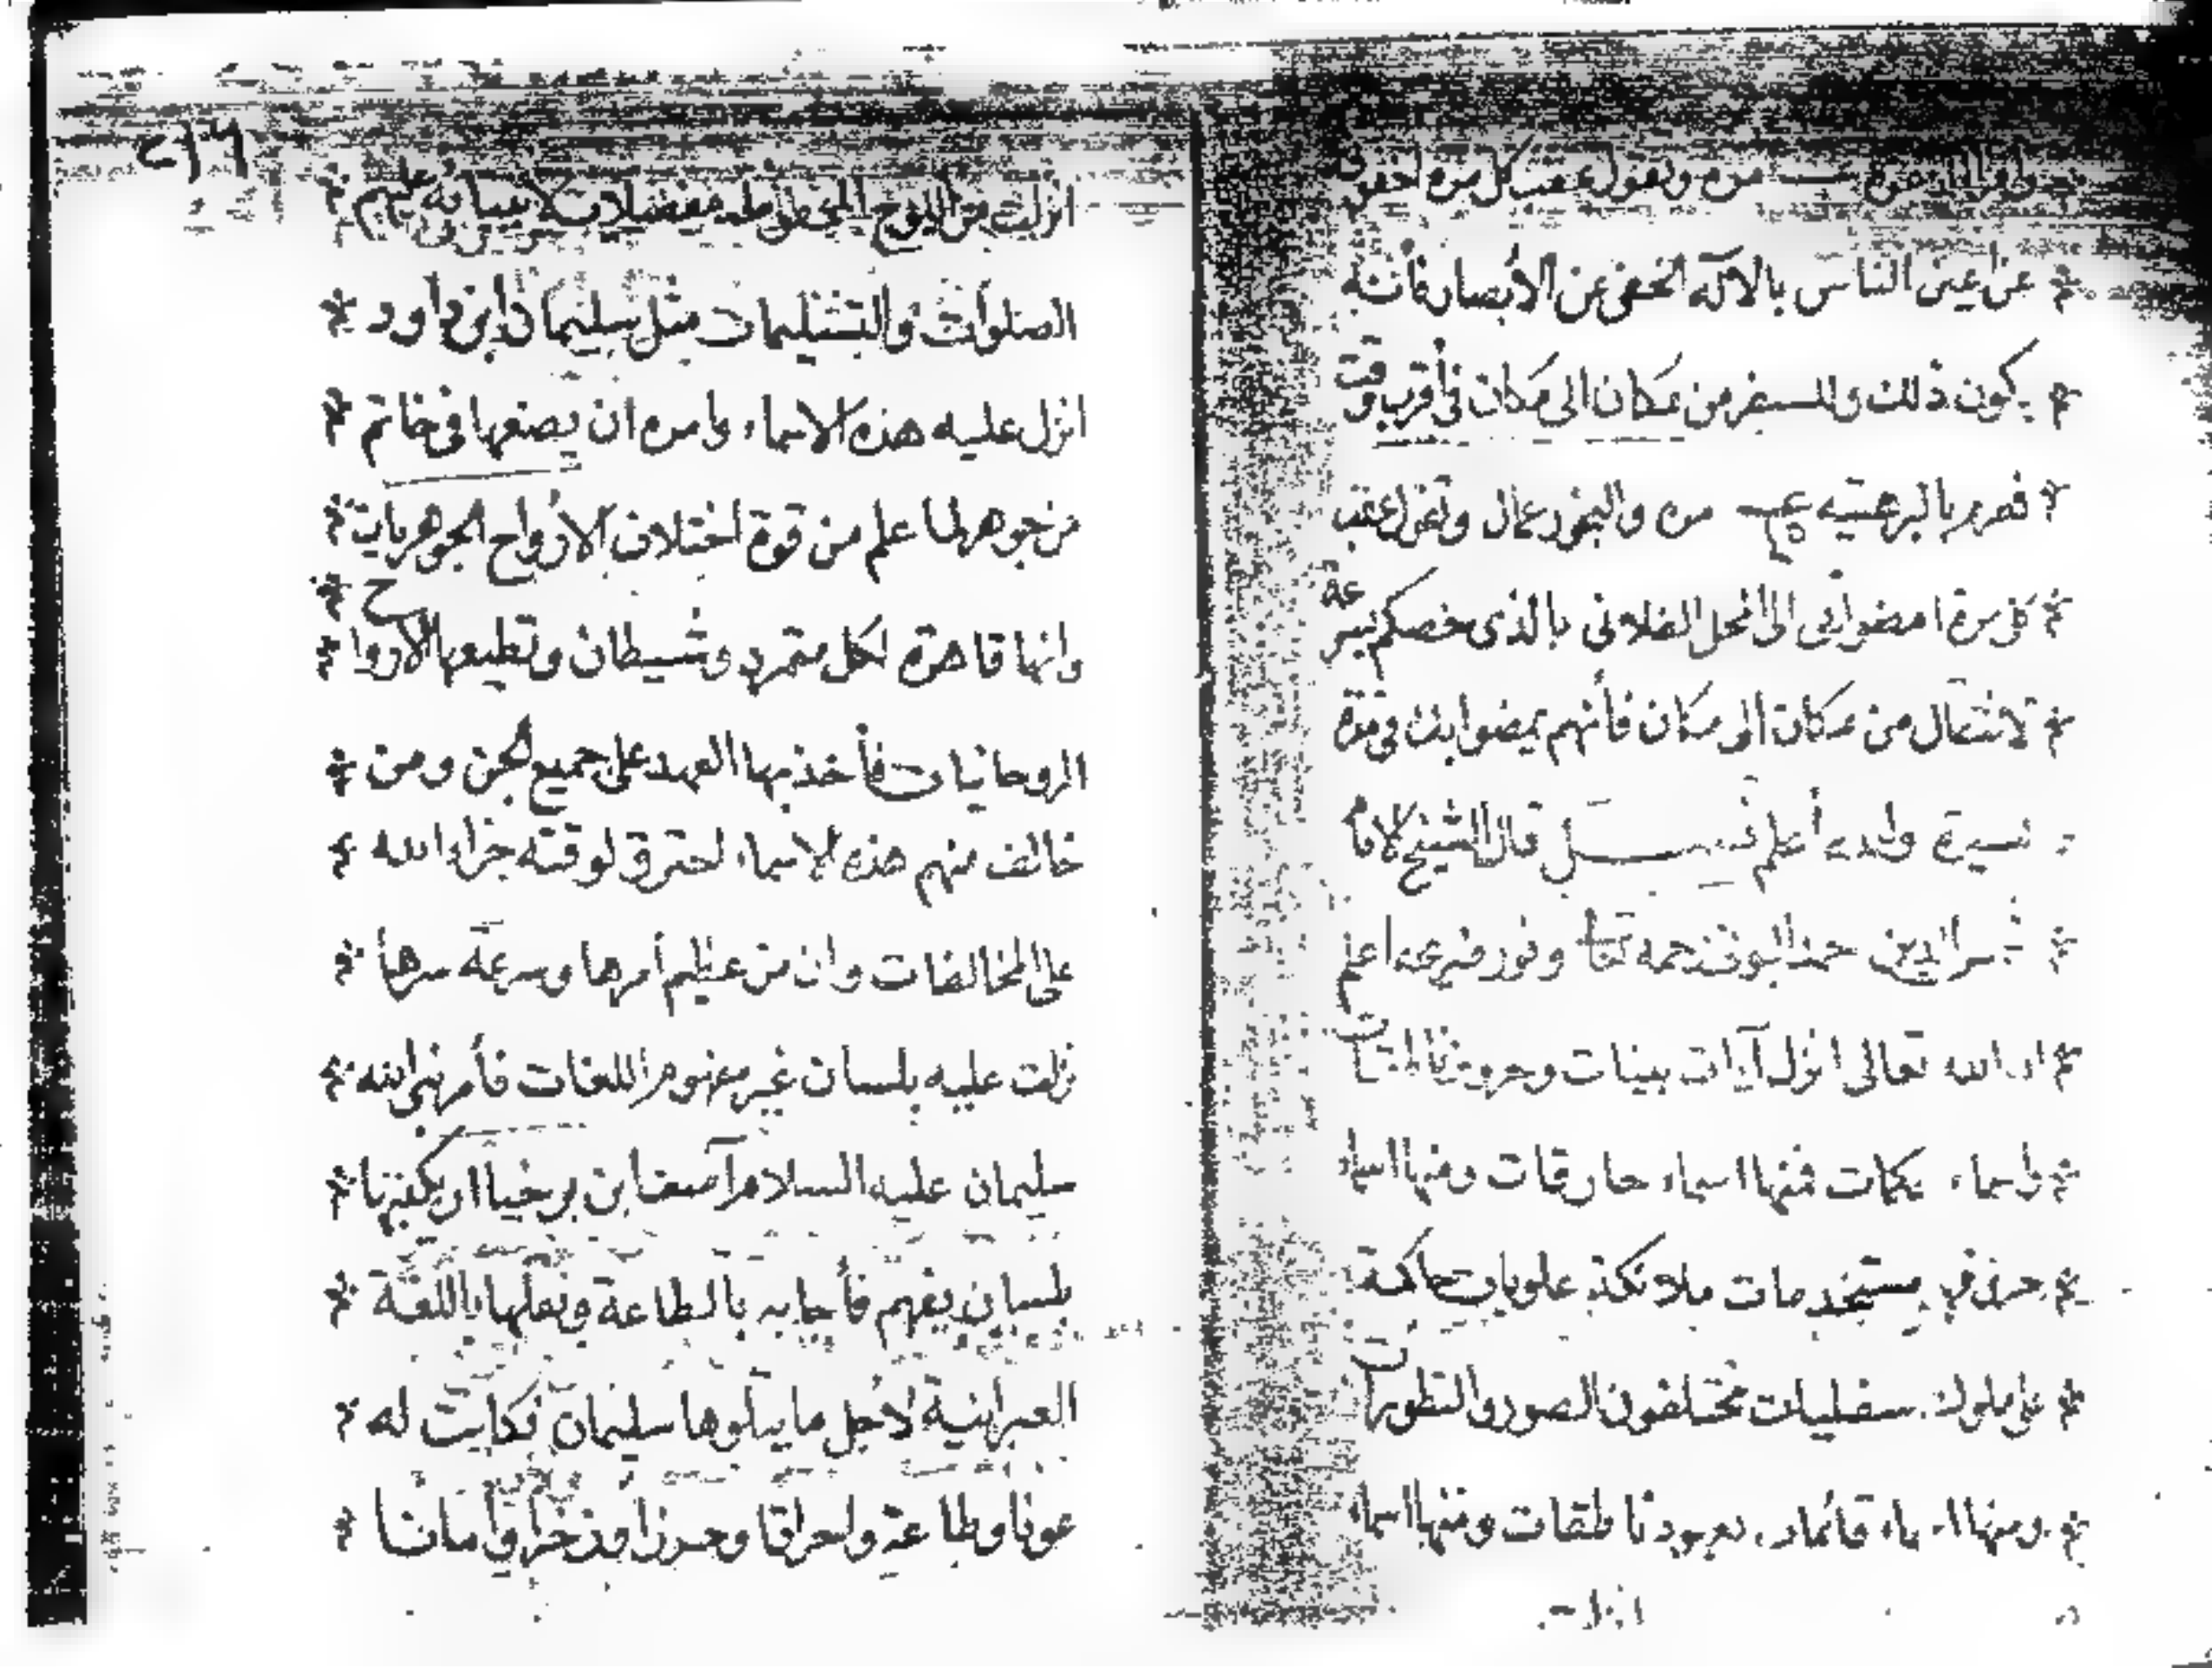 مرة وتقول عقب كل مرة اخفوني
عن اعين الناس بالاله الخفي عن الأبصار فأنه
يكون ذلك وللسفر من مكان الى مكان في أقرب وقت
مره والبخور عمال وتقول عقب
كل مرة امضوا بى الى المحل الفلانى بالذى خصكم بسرعة
لانتقال من مكان الى مكان فأنهم يمضوا بك في مدة
يسيرة أعلم فصل قال الشيخ الامام
الدين البونى رحمه ونور ضريحه اعلم
ان الله تعالى انزل آيات بينات وحروف ناطقات
واسماء فمنها اسماء حارقات ومنها اسماء
مستخدمات ملائكة علويات حاكمة
على ملوك سفليات مختلفون الصور والتطورات
ومنها اسماء ناطقات ومنها اسماء
انزلت
٢١٦
انزلت من اللوح المحفوظ لانبيائه عليهم
الصلوات والتسليمات مثل سليمان ابن داود
انزل عليه هذه الاسماء وامره ان يضعها فى خاتم
من جوهر لما علم من قوة اختلاف الارواح الجوهريات
وانها قاهرة لكل متمرد وشيطان وتطيعها الأرواح
الروحانيات فأخذ بها العهد على جميع الجن ومن
خالف منهم هذه الاسماء احترق لوقته جزاء الله
على المخالفات وان من عظيم أمرها وسرعة سرها
نزلت عليه بلسان غير مفهوم من اللغات فأمر نبى الله
سليمان عليه السلام آصف ابن برخيا ان يكتبها
بلسان يفهم فأجابه بالطاعة ونقلها باللغة
العبرانية لأجل ما يتلوها سليمان فكانت له
عونا وطاعة واحراقا وحرزا وذخرا وأمانا